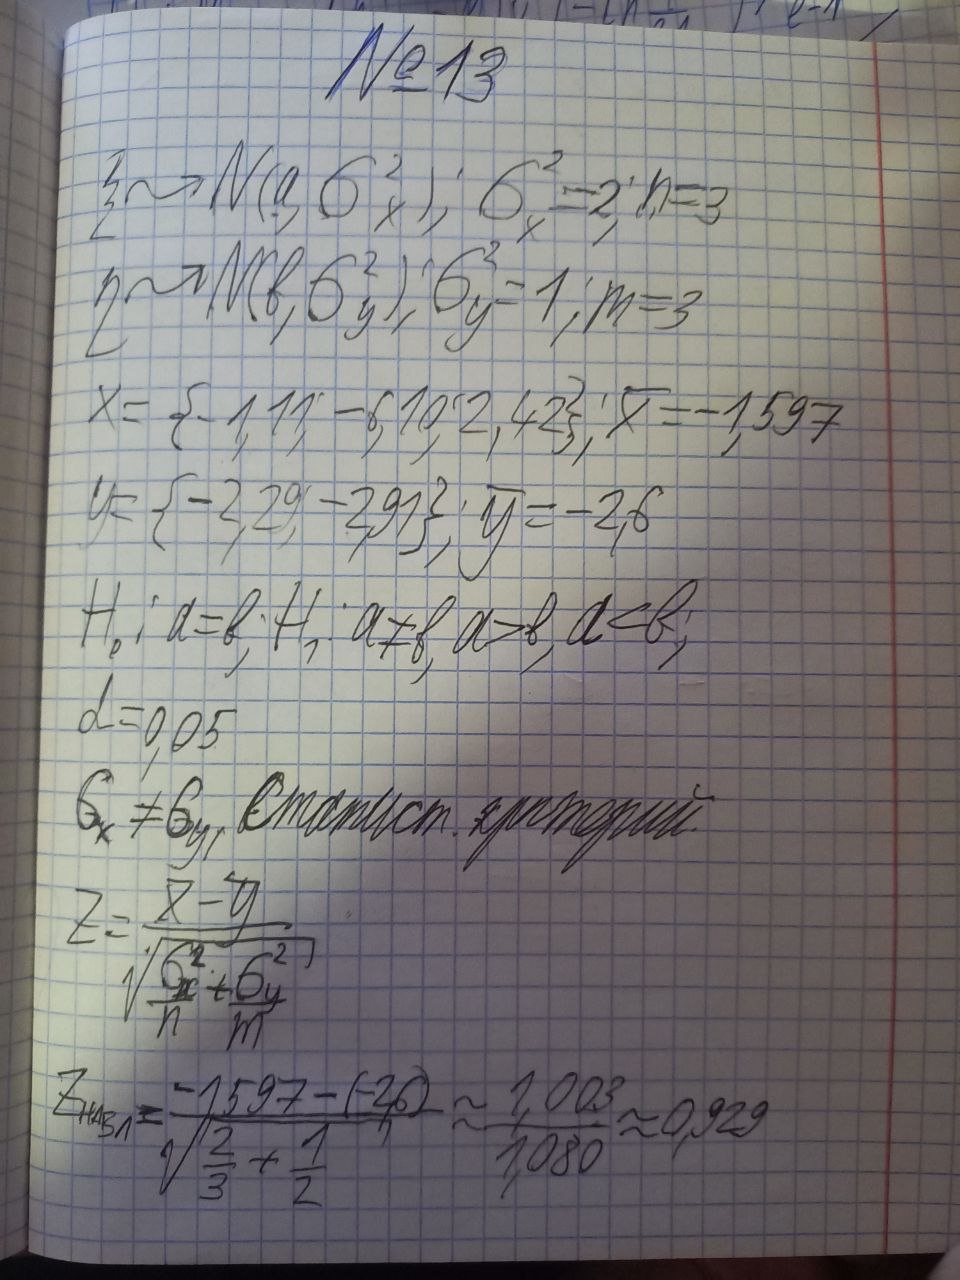 №13
ξ ⤳ N(a, σ²ₓ); σ²ₓ=2; n=3
η ⤳ N(b, σ²ᵧ); σ²ᵧ=1; m=3
x= {-1,11; -6,10; 2,42}; x̄=-1,597
y= {-2,29; -2,91}; ȳ=-2,6
H₀: a=b; H₁: a≠b, a>b, a<b;
α=0,05
σₓ≠σᵧ, статист. критерий.
Z= (x̄-ȳ)/√(σ²ₓ/n + σ²ᵧ/m)
Zнабл = (-1,597-(-2,6))/√(2/3 + 1/2) ≈ 1,003/1,080 ≈ 0,929